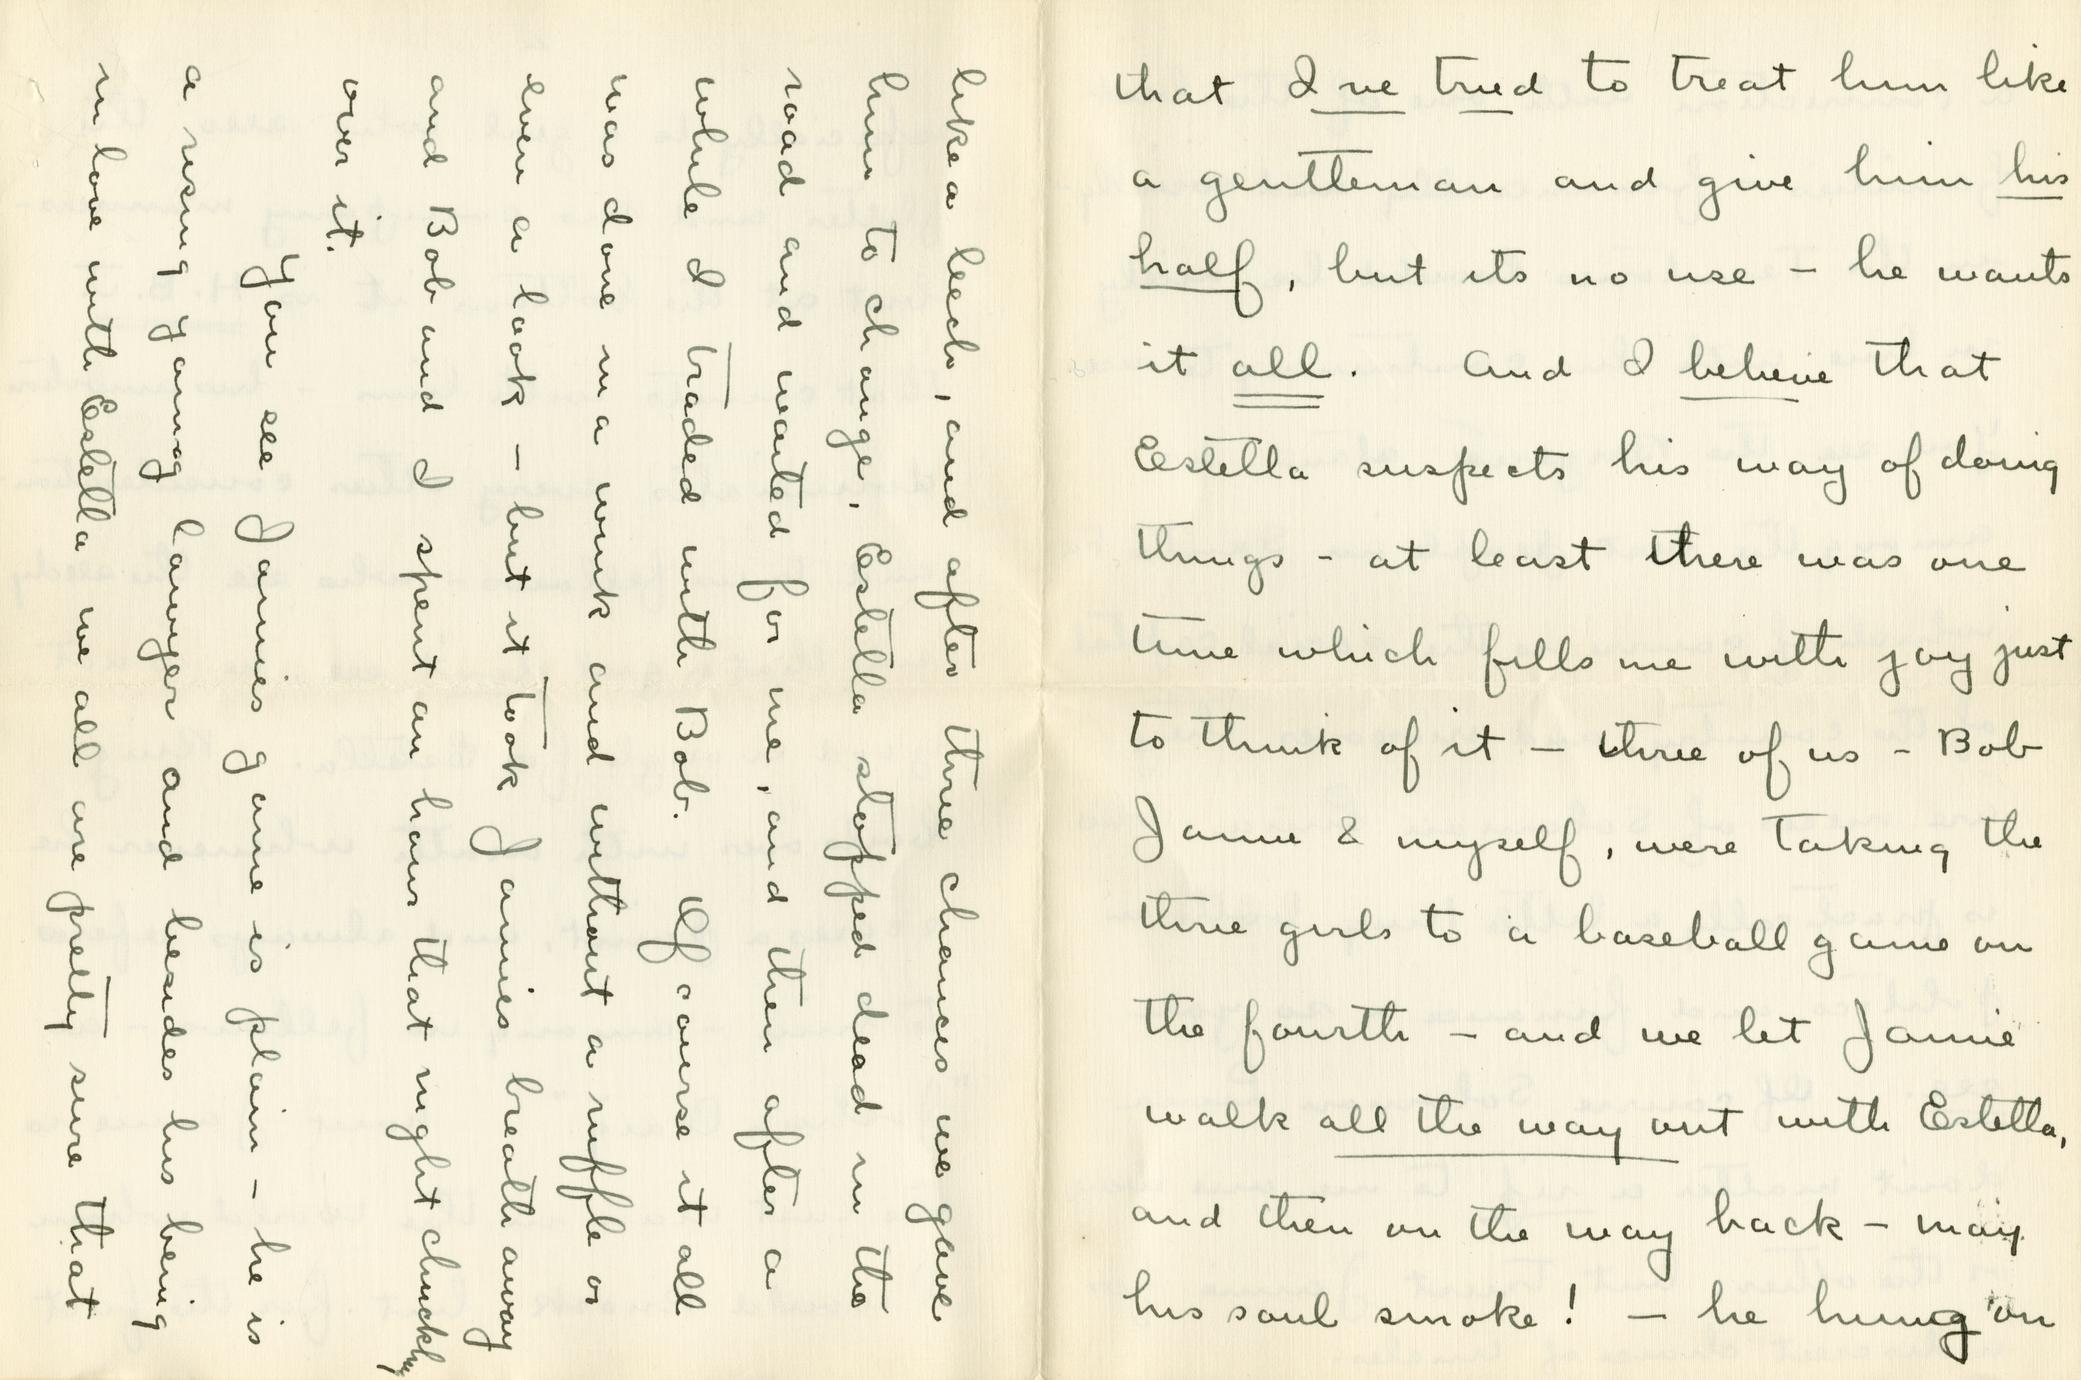 that I've tried to treat him like
a gentleman and give him his
half, but its no use – he wants
it all. And I believe that
Estella suspects his way of doing
things – at least there was one
time which fills me with joy just
to think of it – three of us – Bob
Jamie & myself, were taking the
three girls to a baseball game on
the fourth – and we let Jamie
walk all the way out with Estella,
and then on the way back – may
his soul smoke! – he hung on
like a leech, and after three chances we gave
him to change, Estella stopped dead in the
road and waited for me, and then after a
while I traded with Bob. Of course it all
was done in a wink and without a ruffle or
even a look – but it took Jamies breath away
and Bob and I spent an hour that night chuckling
over it.
You see Jamies game is plain – he is
a rising young lawyer and besides his being
in love with Estella we all are pretty sure that